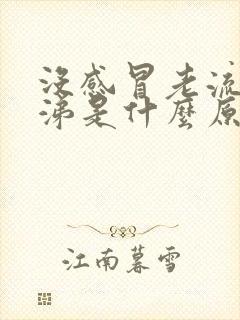 没感冒老流
涕是什麼原
江南暮雪